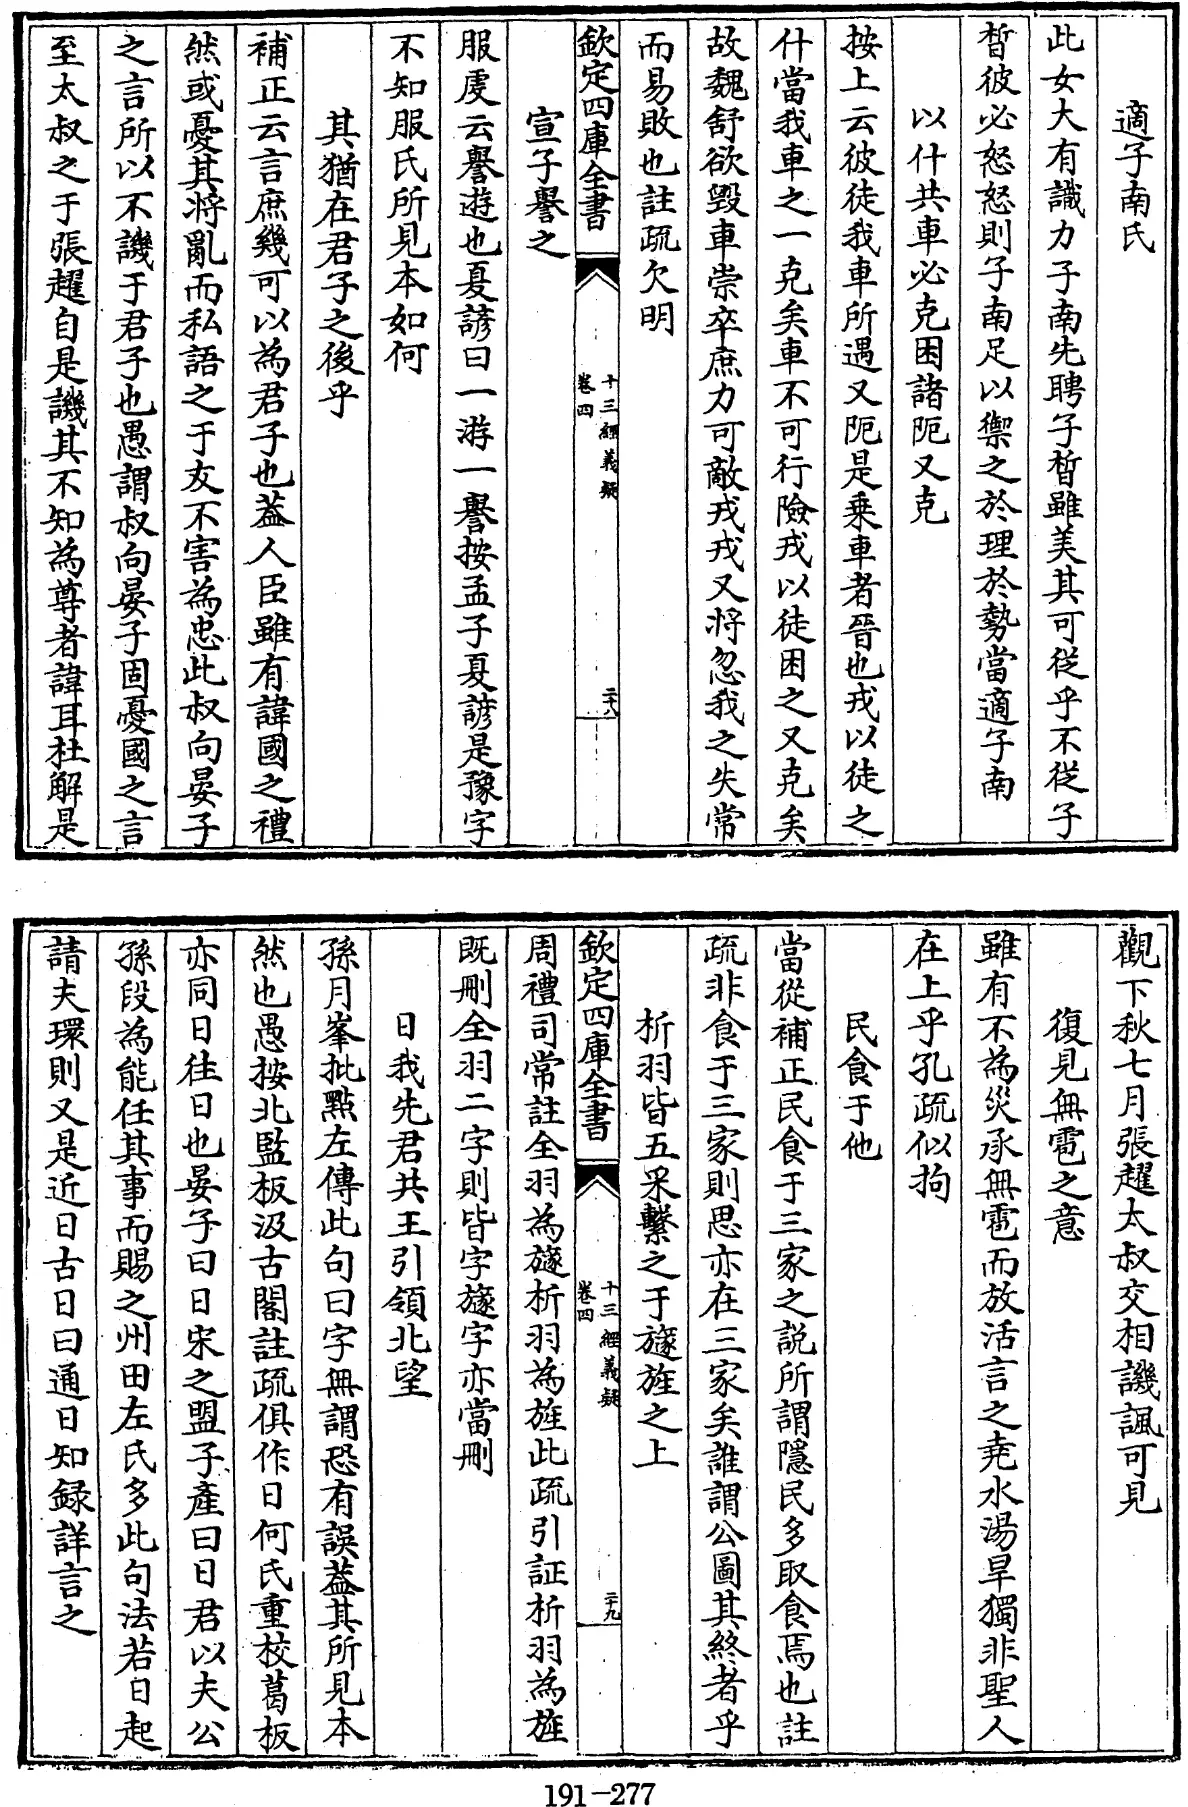 適子南氏
此女大有識力子南先聘子晳雖美其可從乎不從子
晳彼必怒怒則子南足以禦之於理於勢當適子南
以什共車必克困諸阨又克
按上云彼徒我車所遇又阨是乗車者晉也戎以徒之
什當我車之一克矣車不可行險戎以徒困之又克矣
故魏舒欲毁車崇卒庶力可敵戎戎又將忽我之失常
而易敗也註疏欠明
欽定四庫全書
十三經義疑
卷四
二十八
宣子譽之
服虔云譽遊也夏諺曰一游一譽按孟子夏諺是豫字
不知服氏所見本如何
其猶在君子之後乎
補正云言庶幾可以為君子也葢人臣雖有諱國之禮
然或憂其將亂而私語之于友不害為忠此叔向晏子
之言所以不譏于君子也愚謂叔向晏子固憂國之言
至太叔之于張趯自是譏其不知為尊者諱耳杜解是
觀下秋七月張趯太叔交相譏諷可見
復見無雹之意
雖有不為災承無雹而放活言之堯水湯旱獨非聖人
在上乎孔疏似拘
民食于他
當從補正民食于三家之説所謂隱民多取食焉也註
疏非食于三家則思亦在三家矣誰謂公圖其終者乎
析羽皆五采繫之于旞旌之上
周禮司常註全羽為旞析羽為旌此疏引証析羽為旌
既刪全羽二字則皆字旞字亦當刪
欽定四庫全書
十三經義疑
卷四
二十九
日我先君共王引領北望
孫月峯批點左傳此句曰字無謂恐有誤葢其所見本
然也愚按北監板汲古閣註疏俱作日何氏重校葛板
亦同日往日也晏子曰日宋之盟子產曰日君以夫公
孫段為能任其事而賜之州田左氏多此句法若日起
請夫環則又是近日古日曰通日知録詳言之
191-277